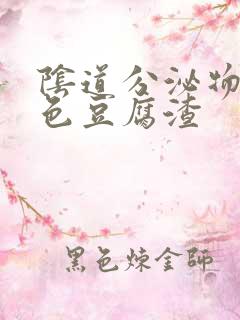 陰道分泌物
色豆腐渣
黑色煉金師